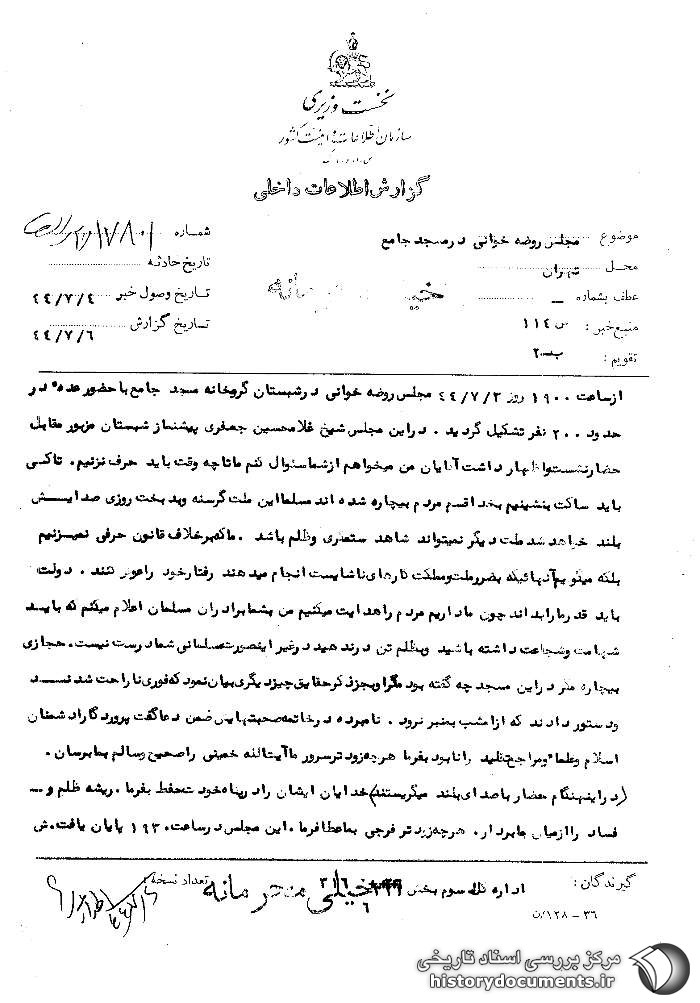 نخست وزیری
سازمان اطلاعات و امنیت کشور
گزارش اطلاعات داخلی
موضوع مجلس روضه خوانی در مسجد جامع
شماره ۱۷۸۰۱
محل تهران
تاریخ حادثه
عطف بشماره ــ
تاریخ وصول خبر ۴۴/۷/۴
خیلی محرمانه
منبع خبر : س ۱۱۴
تاریخ گزارش ۴۴/۷/۶
تقویم : ب-۲
ازساعت ۱۹۰۰ روز ۴۴/۷/۲ مجلس روضه خوانی در شبستان گرمخانه مسجد جامع با حضور عده‌ء در
حدود ۲۰۰ نفر تشکیل گردید . در این مجلس شیخ غلامحسین جعفری پیشنماز شبستان مزبور مقابل
حضار نشست و اظهار داشت آقایان من میخواهم از شما سئوال کنم ما تا چه وقت باید حرف نزنیم . تاکی
باید ساکت بنشینیم بخدا قسم مردم بیچاره شده اند مسلما این ملت گرسنه و بدبخت روزی صدایش
بلند خواهد شد ملت دیگر نمیتواند شاهد ستمگری و ظلم باشد . ما که بر خلاف قانون حرفی نمیزنیم
بلکه میگوئیم آنهائیکه بضرر ملت و مملکت کارهای ناشایست انجام میدهند رفتار خود را عوض کنند . دولت
باید قدر ما را بداند چون ما داریم مردم را هدایت میکنیم من بشما برادران مسلمان اعلام میکنم که باید
شهامت و شجاعت داشته باشید و بظلم تن در ندهید در غیر اینصورت مسلمانی شما درست نیست . حجازی
بیچاره مگر در این مسجد چه گفته بود مگر او بجز ذکر حقایق چیز دیگری بیان نمود که فوری ناراحت شدند
و دستور دادند که از امشب بمنبر نرود . نامبرده در خاتمه صحبتهایش ضمن دعا گفت پروردگارا دشمنان
اسلام و علماء و مراجع تقلید را نابود بفرما هرچه زودتر سرور ما آیت الله خمینی را صحیح و سالم بما برسان .
(در اینهنگام حضار با صدای بلند میگریستند) خدایا ایشان را در پناه خودت حفظ بفرما . ریشه ظلم و ــ
فساد را از میان ما بردار . هرچه زودتر فرجی بما عطا فرما . این مجلس در ساعت ۱۹۳۰ پایان یافت . ش
گیرندگان : اداره کل سوم بخش ۳۱۶
تعداد نسخه :
خیلی محرمانه
۶
۳۶ - ۱۲۸/ن
مرکز بررسی اسناد تاریخی
historydocuments.ir